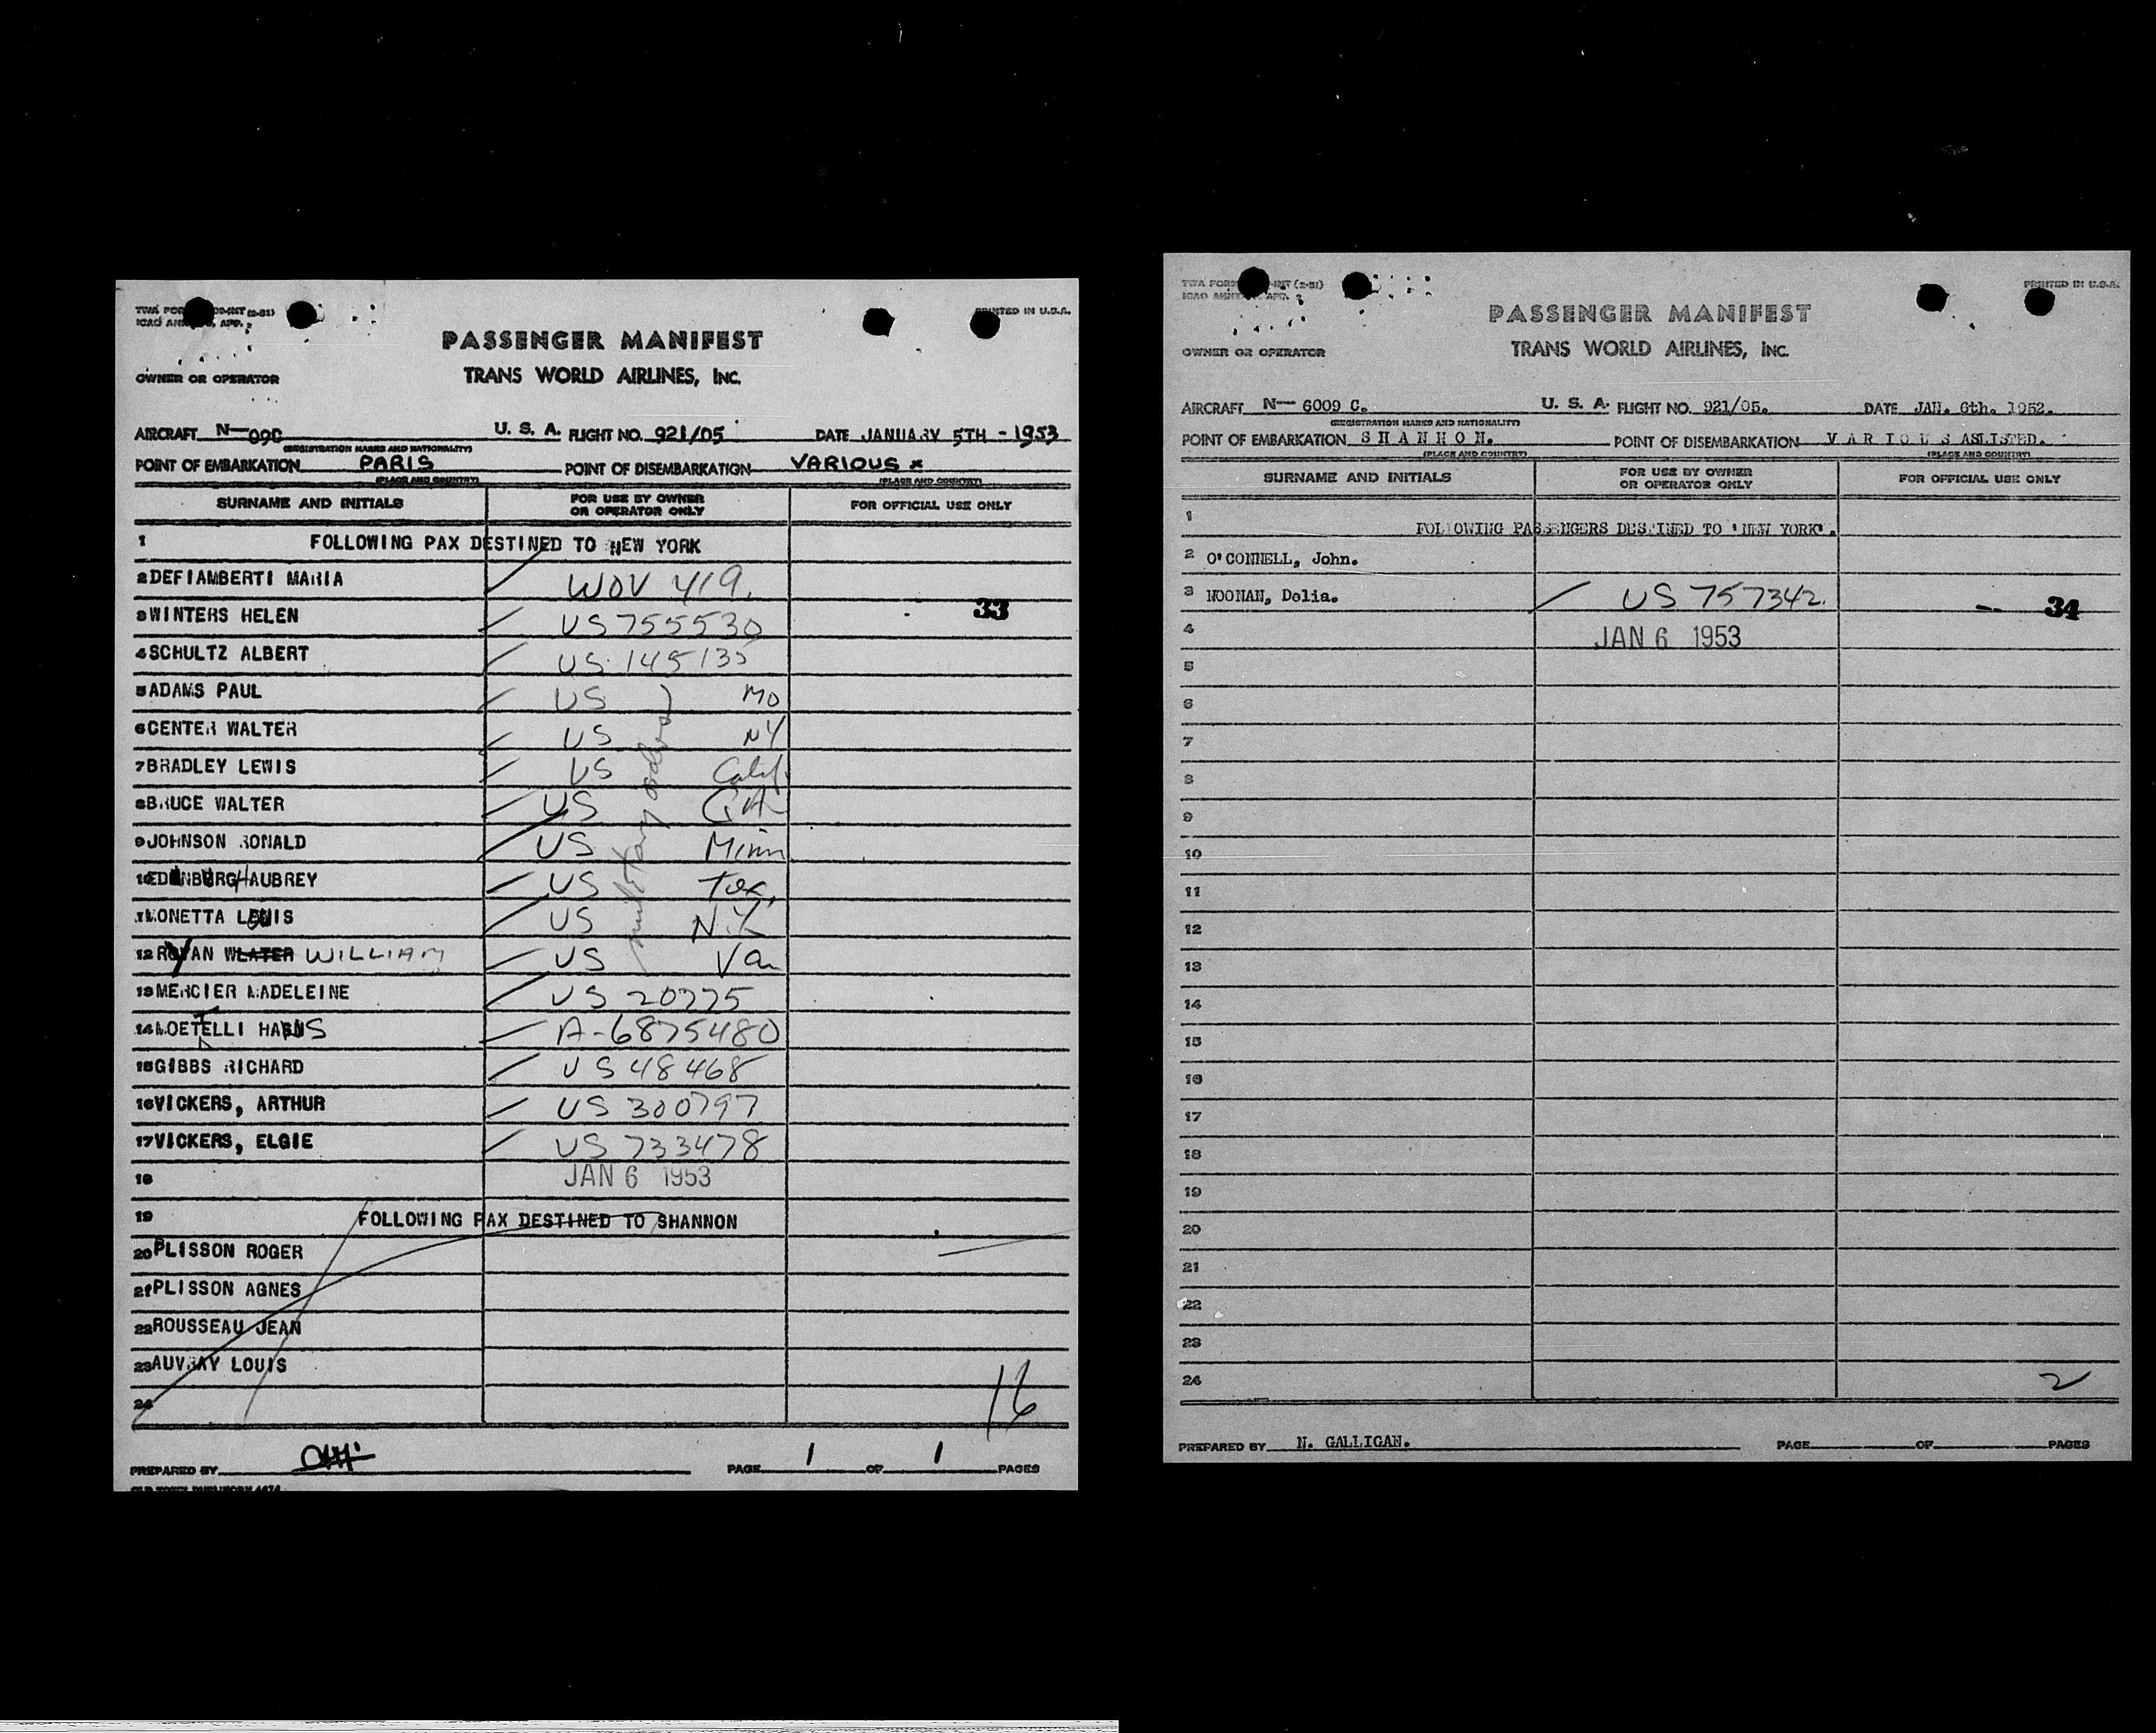 PRINTED IN U.S.A.
PASSENGER MANIFEST
OWNER OR OPERATOR
TRANS WORLD AIRLINES, INC.
AIRCRAFT N-09C U. S. A. FLIGHT NO. 921/05 DATE JANUARY 5TH - 1953
(REGISTRATION MARKS AND NATIONALITY)
POINT OF EMBARKATION PARIS POINT OF DISEMBARKATION VARIOUS x
(PLACE AND COUNTRY) (PLACE AND COUNTRY)
SURNAME AND INITIALS FOR USE BY OWNER OR OPERATOR ONLY FOR OFFICIAL USE ONLY
1 FOLLOWING PAX DESTINED TO NEW YORK
2 DEFIAMBERTI MARIA WOV 419.
3 WINTERS HELEN US 755530 33
4 SCHULTZ ALBERT US 145135
5 ADAMS PAUL US Mo
6 CENTER WALTER US NY
7 BRADLEY LEWIS US Calif
8 BRUCE WALTER US GA
9 JOHNSON RONALD US Minn
10 EDINBURGH AUBREY US Tex,
11 MONETTA LOUIS US N.Y.
12 RYAN WLATER WILLIAM US Va
military orders
13 MERCIER MADELEINE US 20775
14 HANS A-6875480
15 GIBBS RICHARD US 48468
16 VICKERS, ARTHUR US 300797
17 VICKERS, ELGIE US 733478
18 JAN 6 1953
19 FOLLOWING PAX DESTINED TO SHANNON
20 PLISSON ROGER
21 PLISSON AGNES
22 ROUSSEAU JEAN
23 AUVRAY LOUIS
24 16
PREPARED BY PAGE 1 OF 1 PAGES
TWA FORM (2-51) PRINTED IN U.S.A.
PASSENGER MANIFEST
OWNER OR OPERATOR
TRANS WORLD AIRLINES, INC.
AIRCRAFT N- 6009 C. U. S. A. FLIGHT NO. 921/05. DATE JAN. 6th. 1952.
(REGISTRATION MARKS AND NATIONALITY)
POINT OF EMBARKATION S H A N N O N. POINT OF DISEMBARKATION V A R I O U S ASLISTED.
(PLACE AND COUNTRY) (PLACE AND COUNTRY)
SURNAME AND INITIALS FOR USE BY OWNER OR OPERATOR ONLY FOR OFFICIAL USE ONLY
1 FOLLOWING PASSENGERS DESTINED TO 'NEW YORK'.
2 O'CONNELL, John.
3 NOONAN, Delia. US 757342. 34
4 JAN 6 1953
5
6
7
8
9
10
11
12
13
14
15
16
17
18
19
20
21
22
23
24 2
PREPARED BY N. GALLIGAN. PAGE OF PAGES